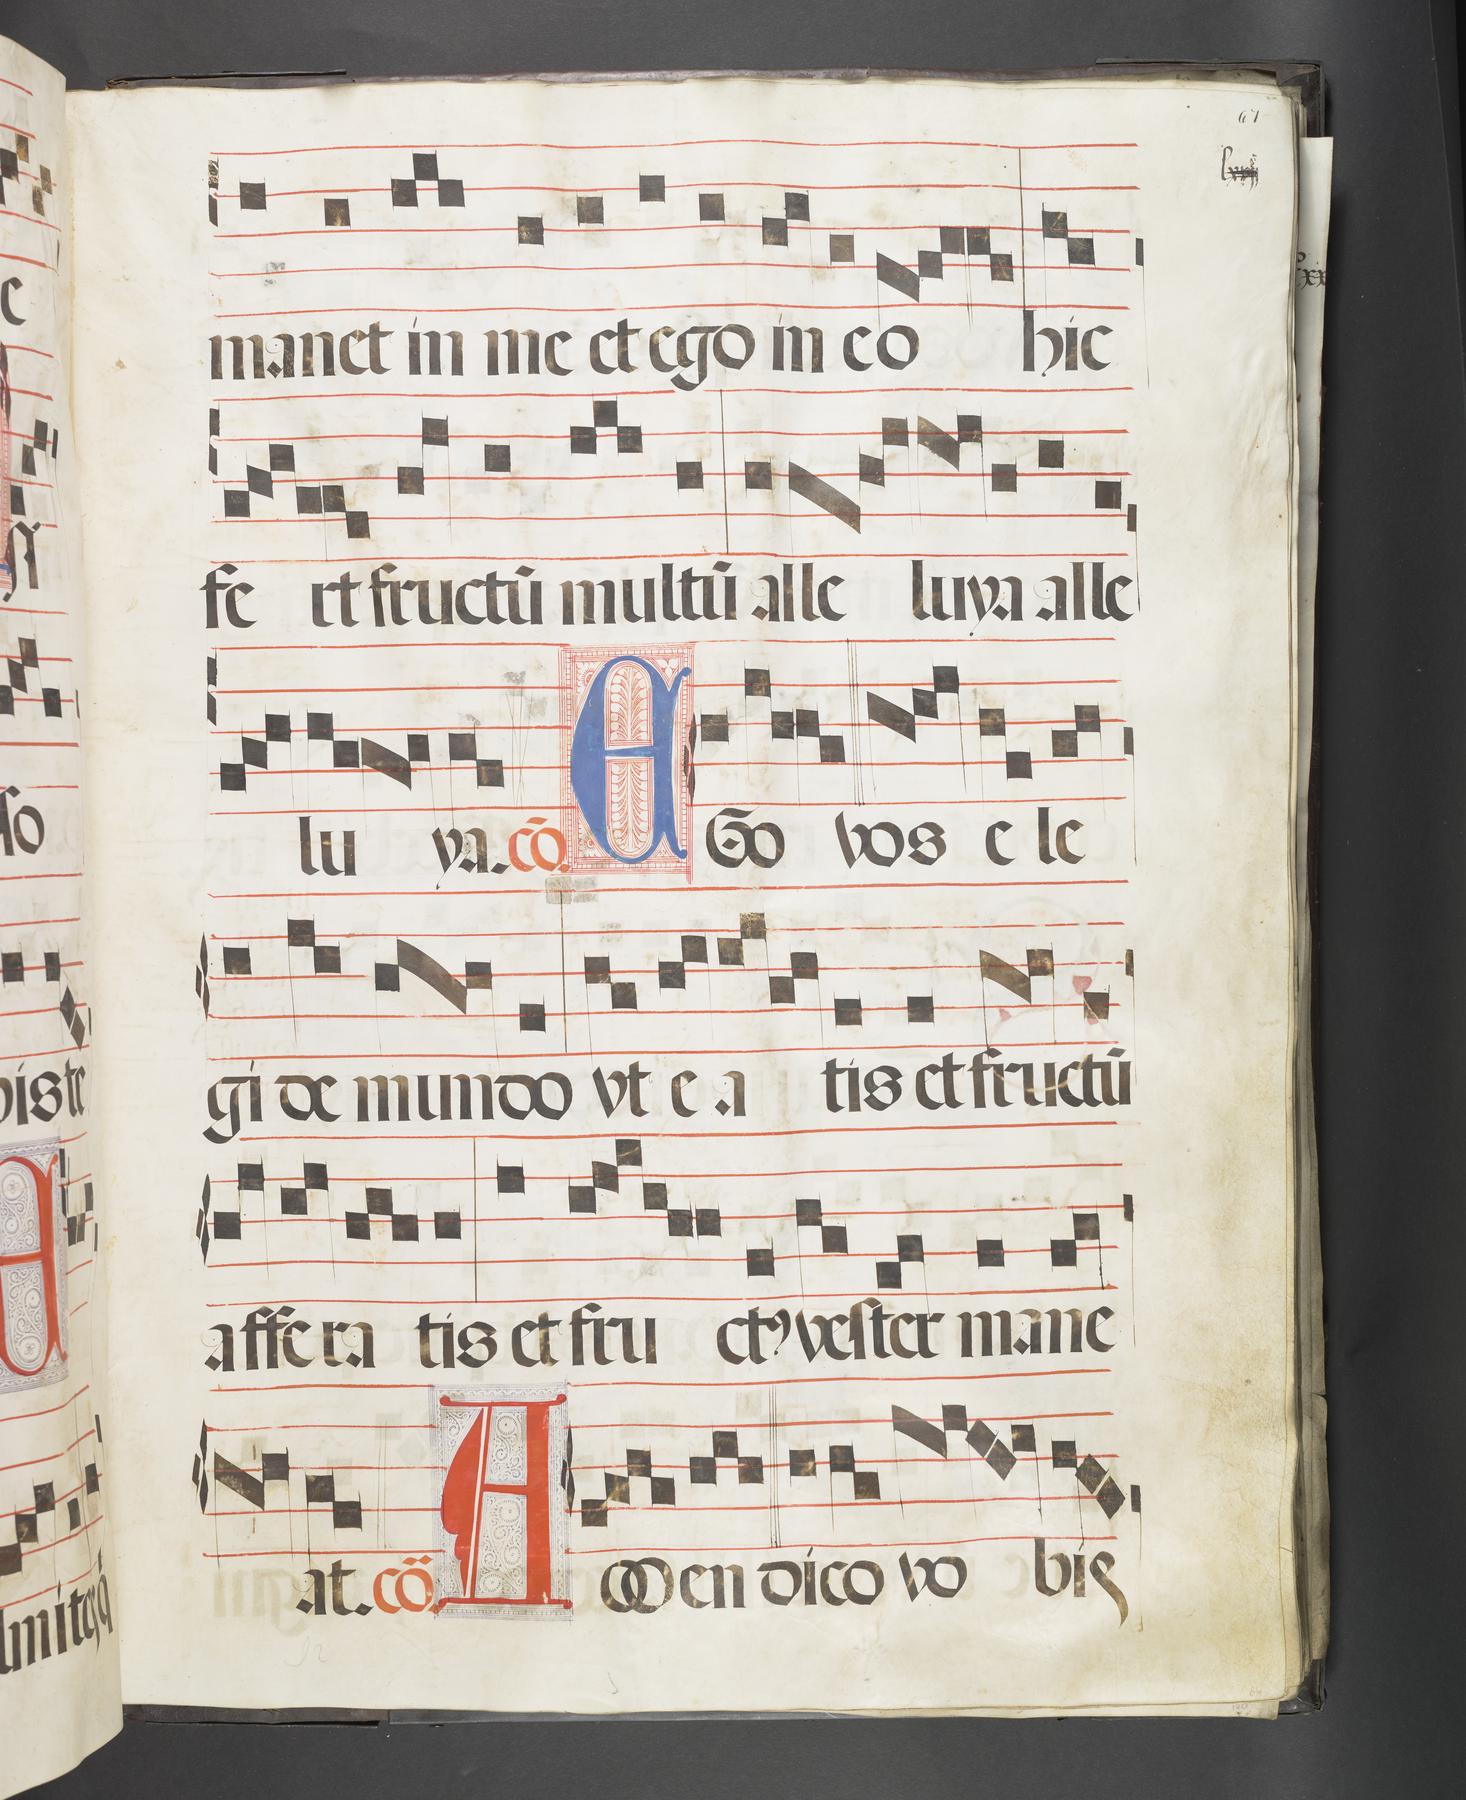 67
manet in me et ego in eo hic
fe rt fructū multū alle luya alle
lu ya. cō. EGo vos e le
gi de mundo vt e a tis et fructū
affe ra tis et fru ctꝰ vester mane
at. cō. AMen dico vo bis